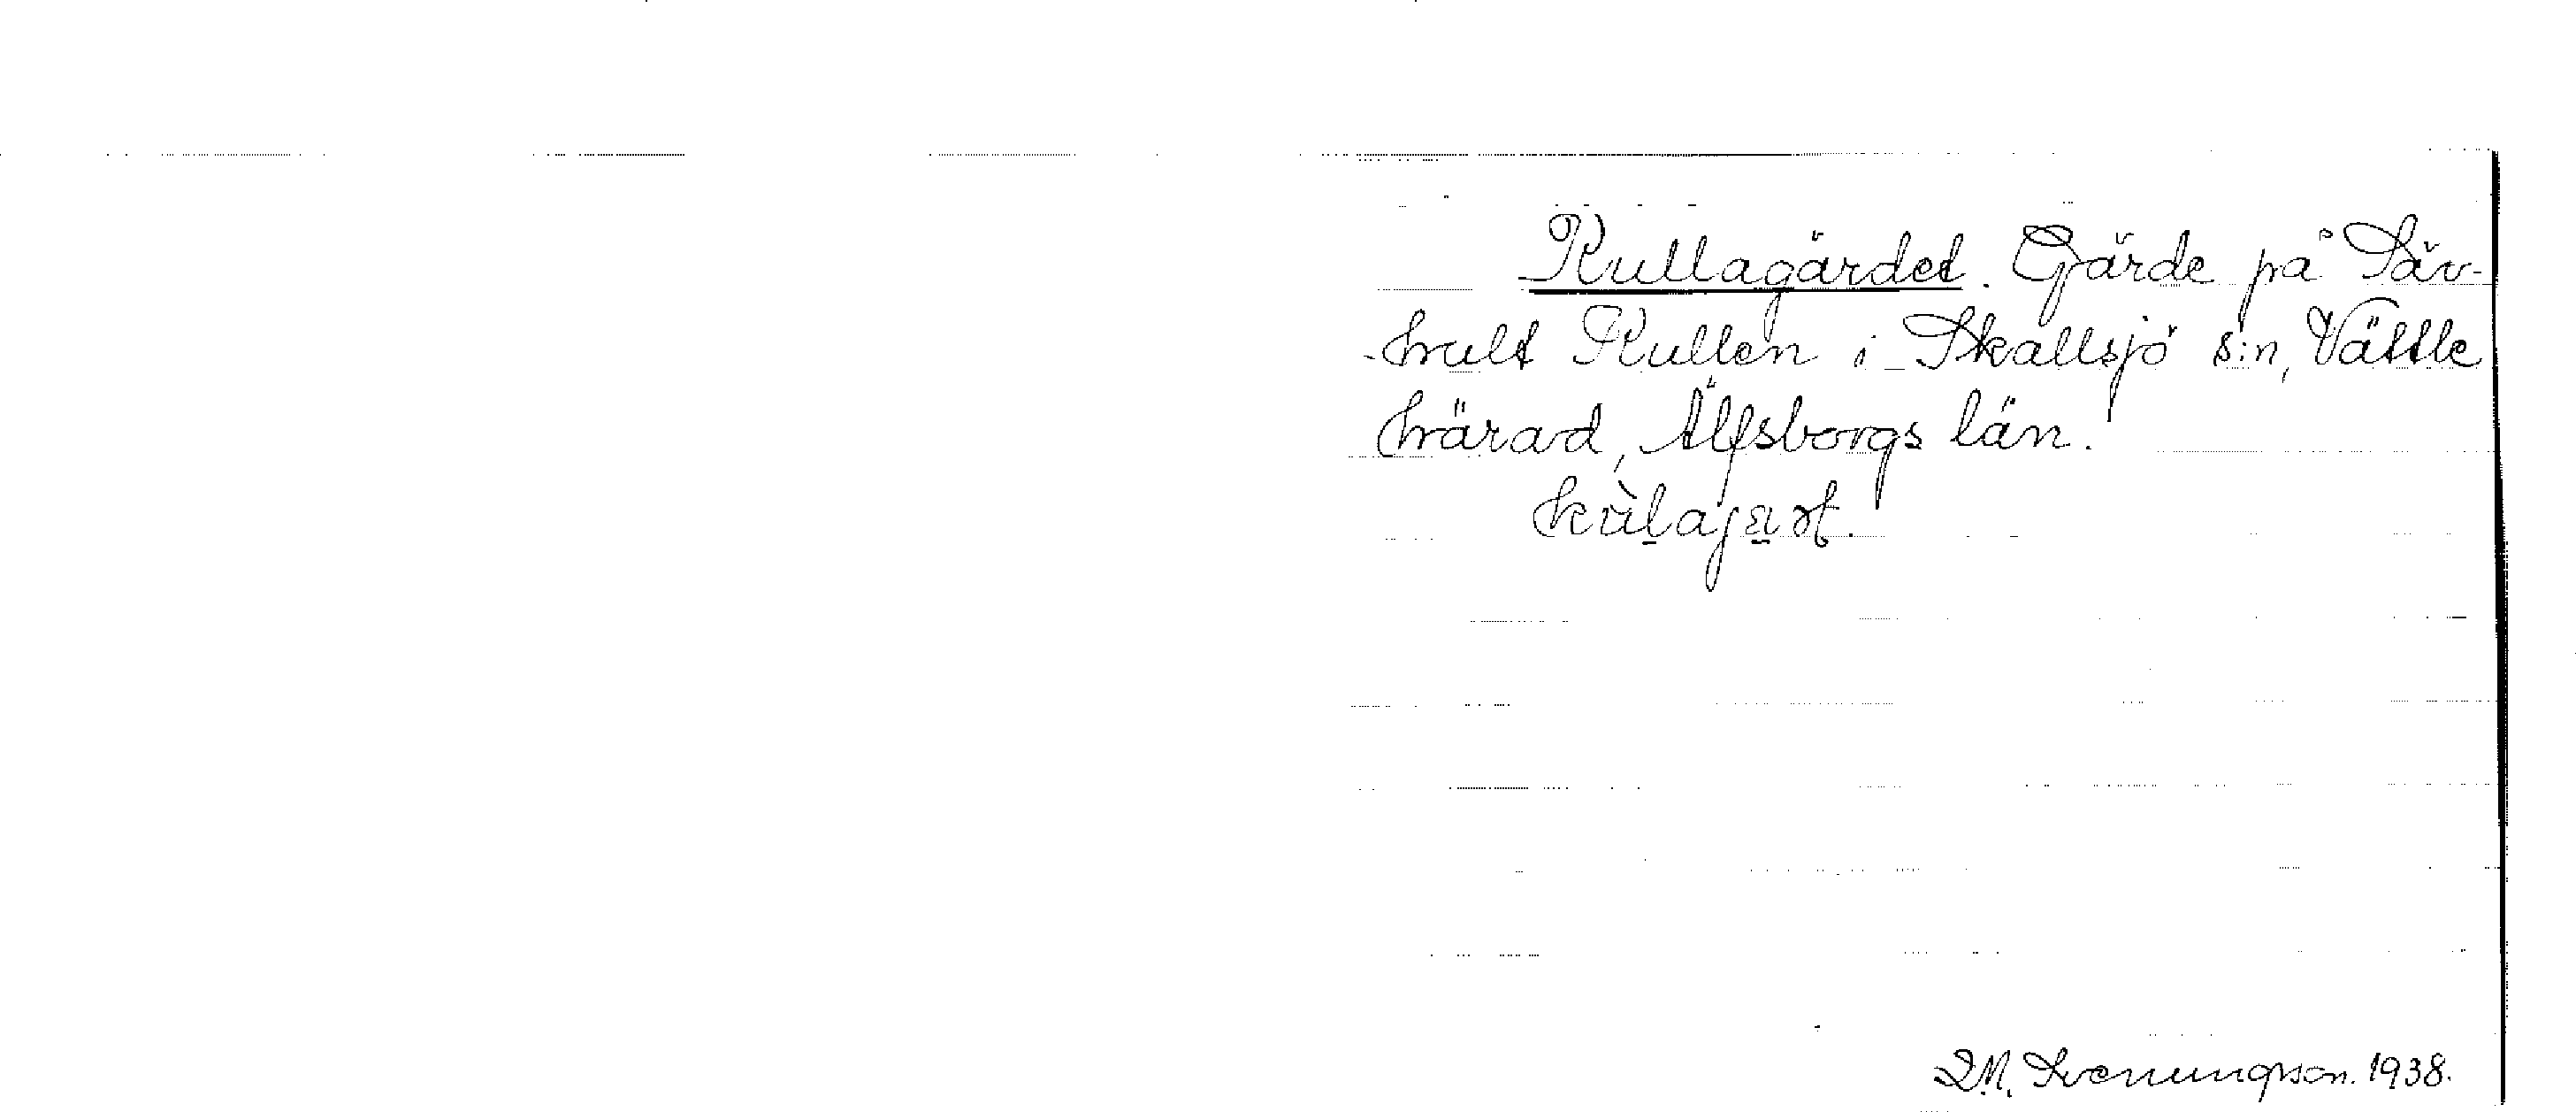 Kullagärdet. Gärde på Säv-
hult Kullen i Skallsjö s:n, Vättle
härad, Älfsborgs län.
D.M. Svenungsson. 1938.